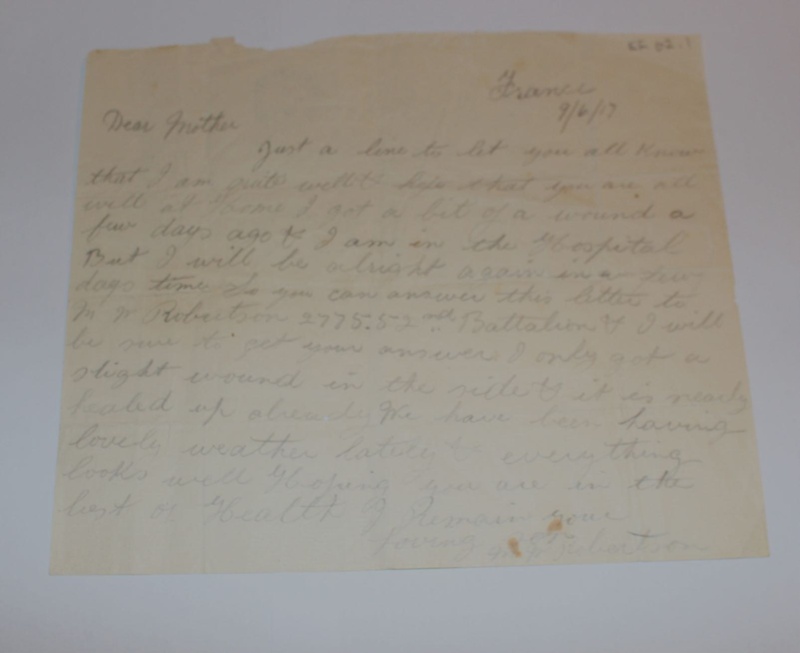 France
9/6/17
Dear Mother
Just a line to let you all know
that I am quite well & hope that you are all
well at Home I got a bit of a wound a
few days ago & I am in the Hospital
But I will be alright again in a few
days time So you can answer this letter to
M W Robertson 2775.52nd Battalion & I will
be sure to get your answer I only got a
slight wound in the side & it is nearly
healed up already We have been having
lovely weather lately & everything
looks well Hoping you are in the
best of Health I Remain your
loving Robertson